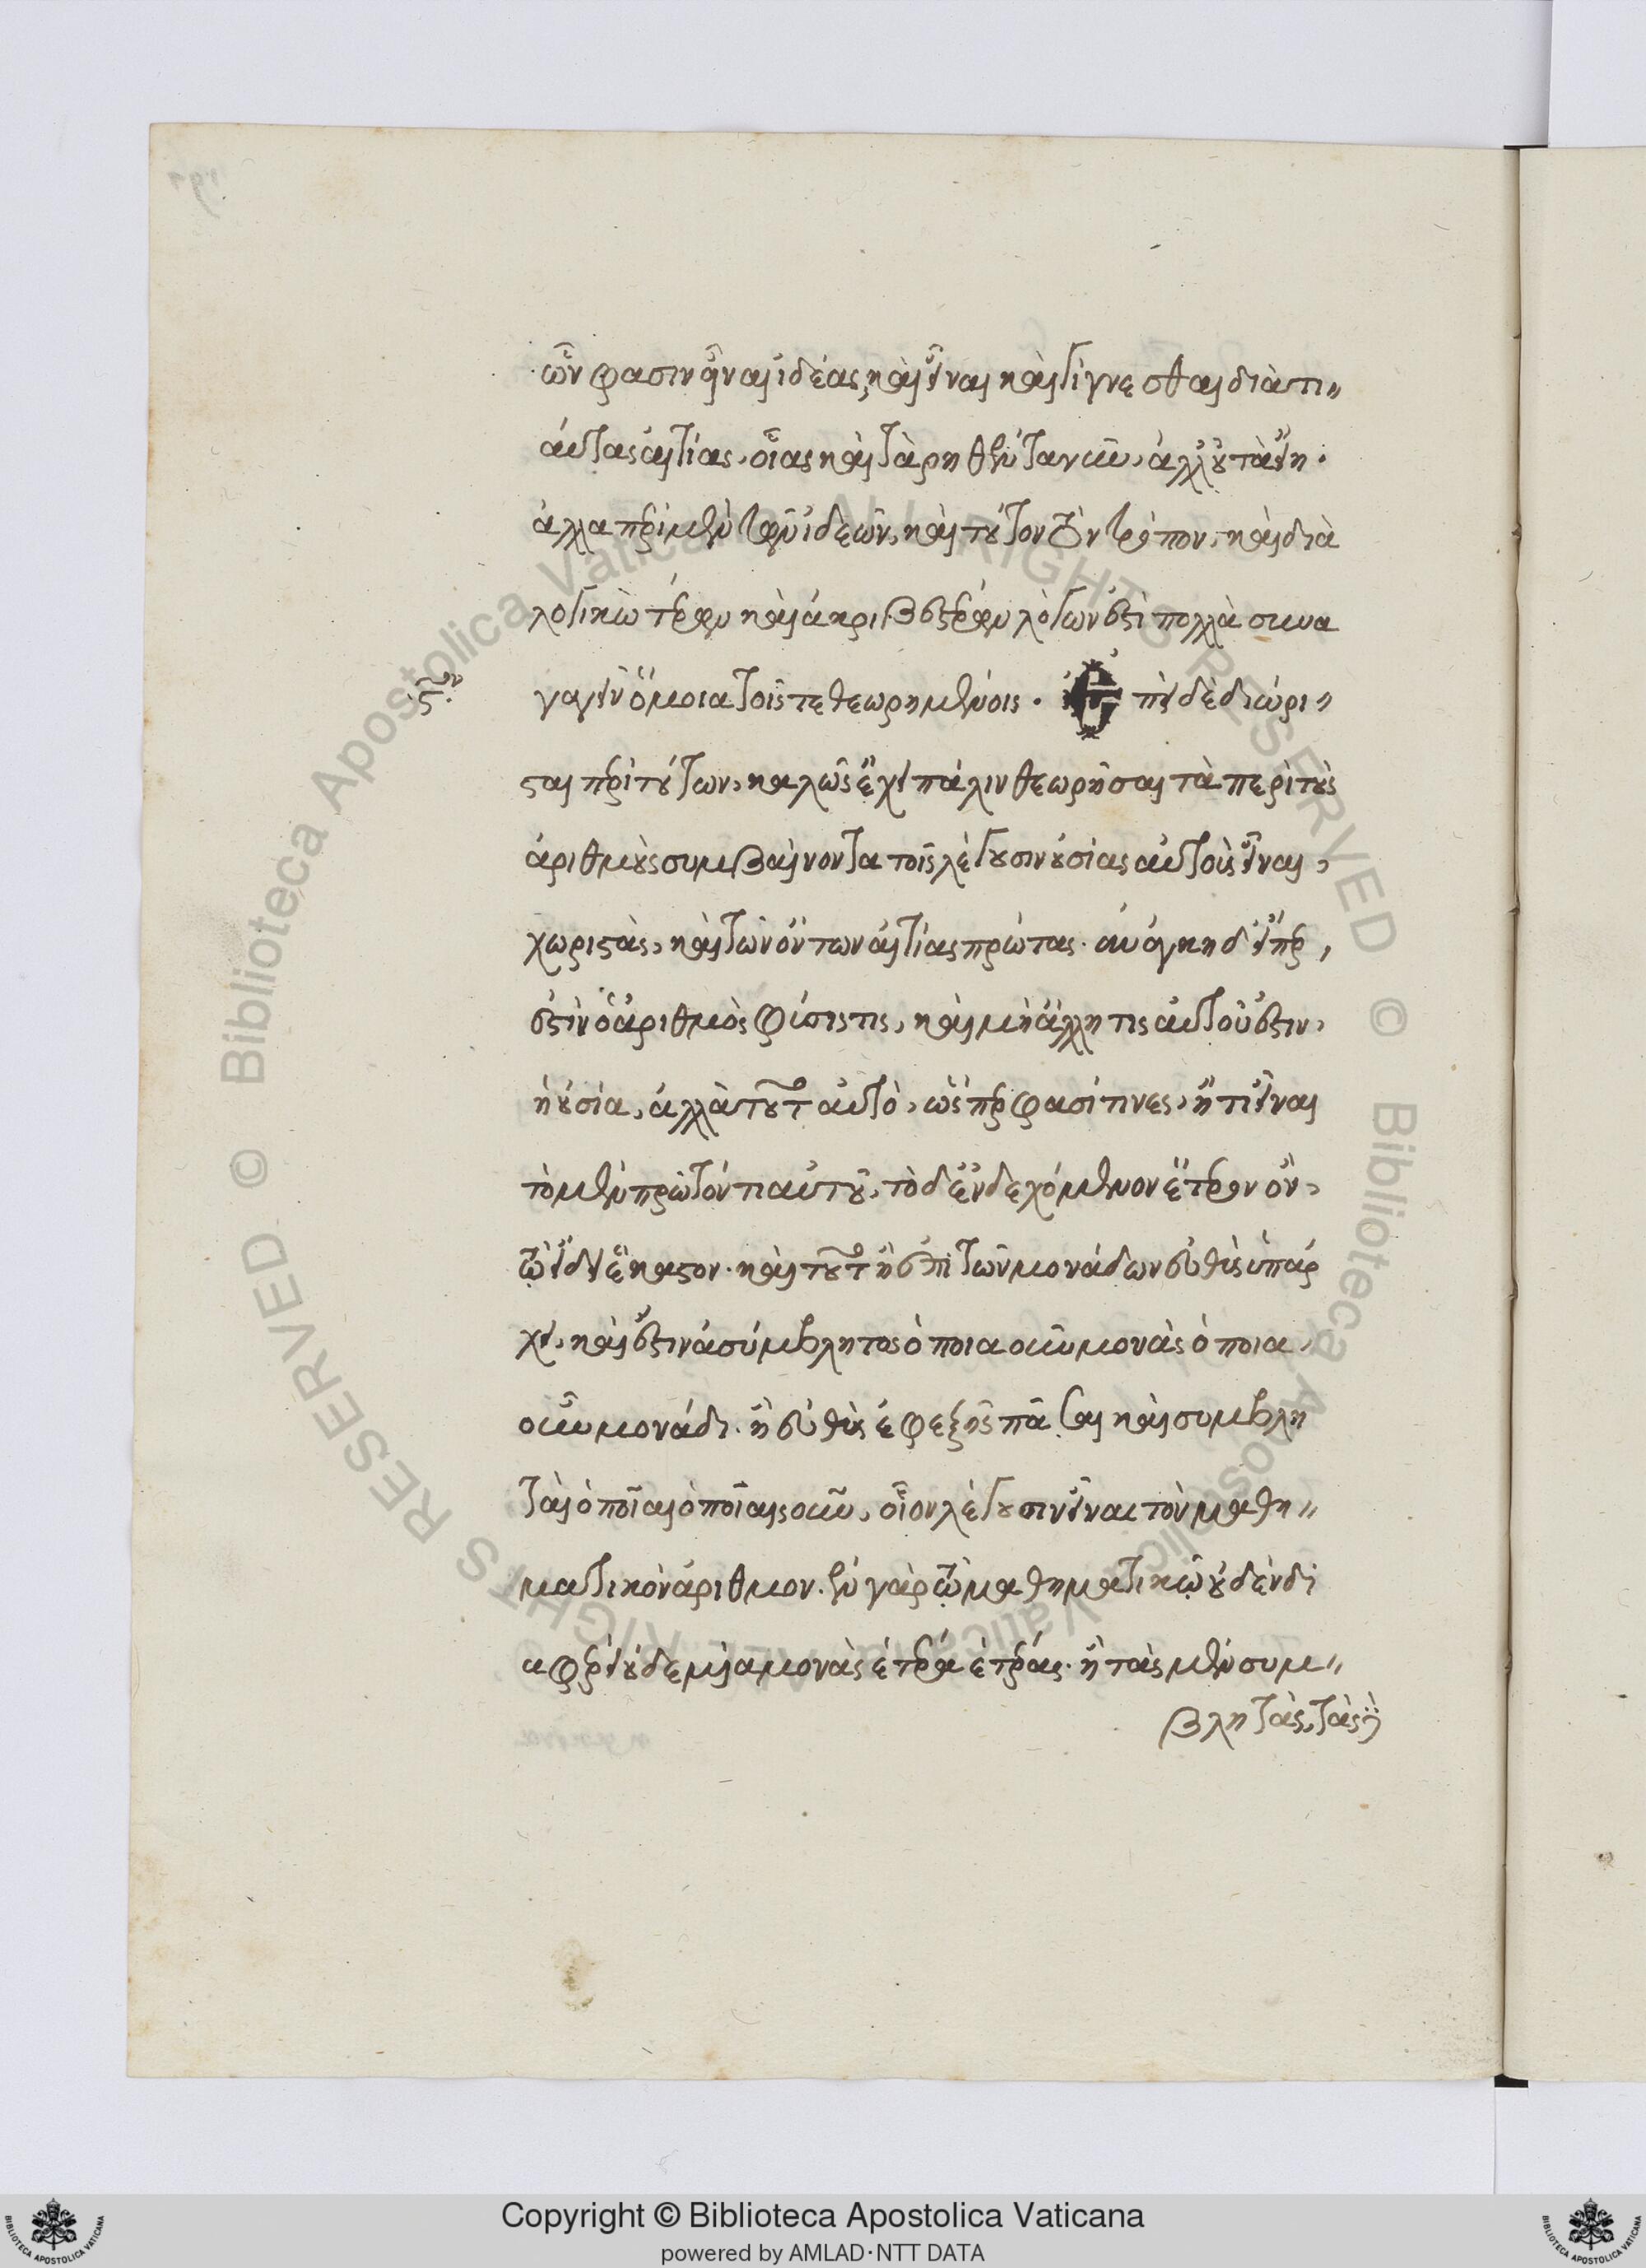 ὧν φασιν εἶναι ἰδέας, καὶ εἶναι καὶ γίγνεσθαι διὰ τι
αύτας αἰτίας, οἵας καὶ τὰ ῥηθέντα νῦν, ἀλλ' οὐ τὰ εἴδη.
ἀλλὰ περὶ μὲν τῶν ἰδεῶν, καὶ τοῦτον τὸν τρόπον, καὶ διὰ
λογικωτέρων καὶ ἀκριβεστέρων λόγων ἐστὶ πολλὰ συνα
γαγεῖν ὅμοια τοῖς τεθεωρημένοις. Ἐπεὶ δὲ διώρι
σται περὶ τούτων, καλῶς ἔχει πάλιν θεωρῆσαι τὰ περὶ τοὺς
ἀριθμοὺς συμβαίνοντα τοῖς λέγουσιν οὐσίας αὐτοὺς εἶναι,
χωριστὰς, καὶ τῶν ὄντων αἰτίας πρώτας. ἀνάγκη δ' εἴπερ,
ἐστὶν ὁ ἀριθμὸς φύσις τις, καὶ μὴ ἄλλη τις αὐτοῦ ἐστιν,
ἡ οὐσία, ἀλλὰ τοῦτ αὐτὸ, ὥσπερ φασί τινες, ἤτι εἶναι
τὸ μὲν πρῶτόν τι αὐτοῦ, τὸ δ' ἐνδεχόμενον ἕτερον ὂν,
τῷ εἴδει ἕκαστον. καὶ τοῦτο ἢ ἐπὶ τῶν μονάδων εὐθὺς ὑπάρ
χει, καὶ ἔστιν ἀσύμβλητος ὁποιαοῦν μονὰς ὁποια
οῦν μονάδι. ἢ εὐθὺς ἐφεξῆς πᾶσαι καὶ συμβλη
ταὶ ὁποῖαι ὁποῖαις οῦν, οἷον λέγουσιν εἶναι τὸν μαθη
ματικὸν ἀριθμον. ἐν γὰρ τῷ μαθηματικῷ οὐδὲν δι
αφέρει οὐδεμία μονὰς ἑτέρα ἑτέρας. ἢ τὰς μὲν συμ
βλητὰς, τὰς